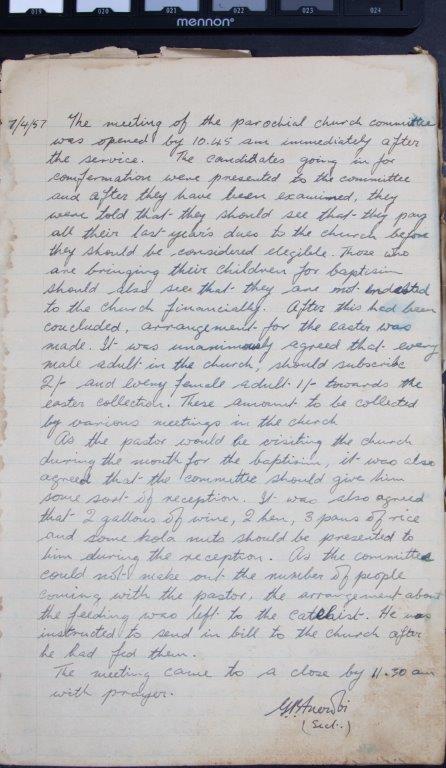 019 020 021 022 023 024
mennon
7/4/57 The meeting of the parochial church committee
was opened by 10.45 am immediately after
the service. The candidates going in for
comfermation were presented to the committee
and after they have been examined, they
were told that they should see that they pay
all their last year's dues to the church before
they should be considered elegible. Those who
are bringing their children for baptisim
should also see that they are not indebted
to the church financially. After this had been
concluded, arrangement for the easter was
made. It was unanimously agreed that every
male adult in the church, should subscribe
2/- and every female adult 1/- towards the
easter collection. These amount to be collected
by various meetings in the church
As the pastor would be visiting the church
during the month for the baptisim, it was also
agreed that the committee should give him
some sort of reception. It was also agreed
that 2 gallons of wine, 2 hen, 3 pans of rice
and some kola nuts should be presented to
him during the reception. As the committee
could not make out the number of people
coming with the pastor, the arrangement about
the feeding was left to the catechist. He was
instructed to send in bill to the church after
he had fed them.
The meeting came to a close by 11.30 am
with prayer.
(Sect.)